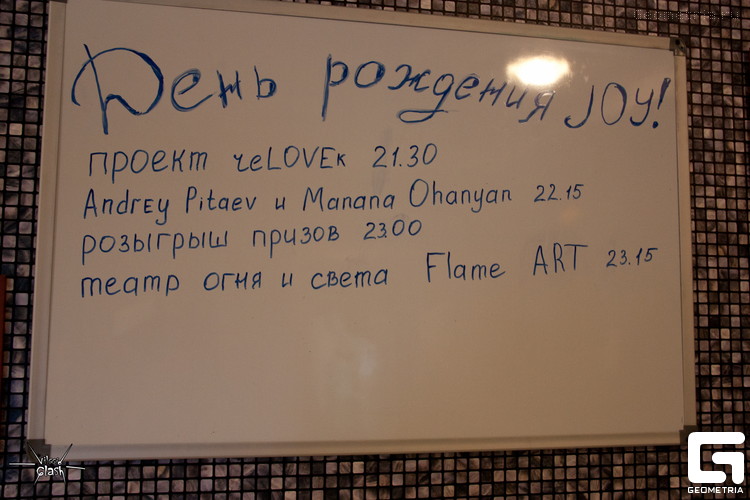 День рождения JOY!
проект чеLOVEк 21.30
Andrey Pitaev и Manana Ohanyan 22.15
розыгрыш призов 23.00
театр огня и света Flame ART 23.15
Clash
GEOMETRIA